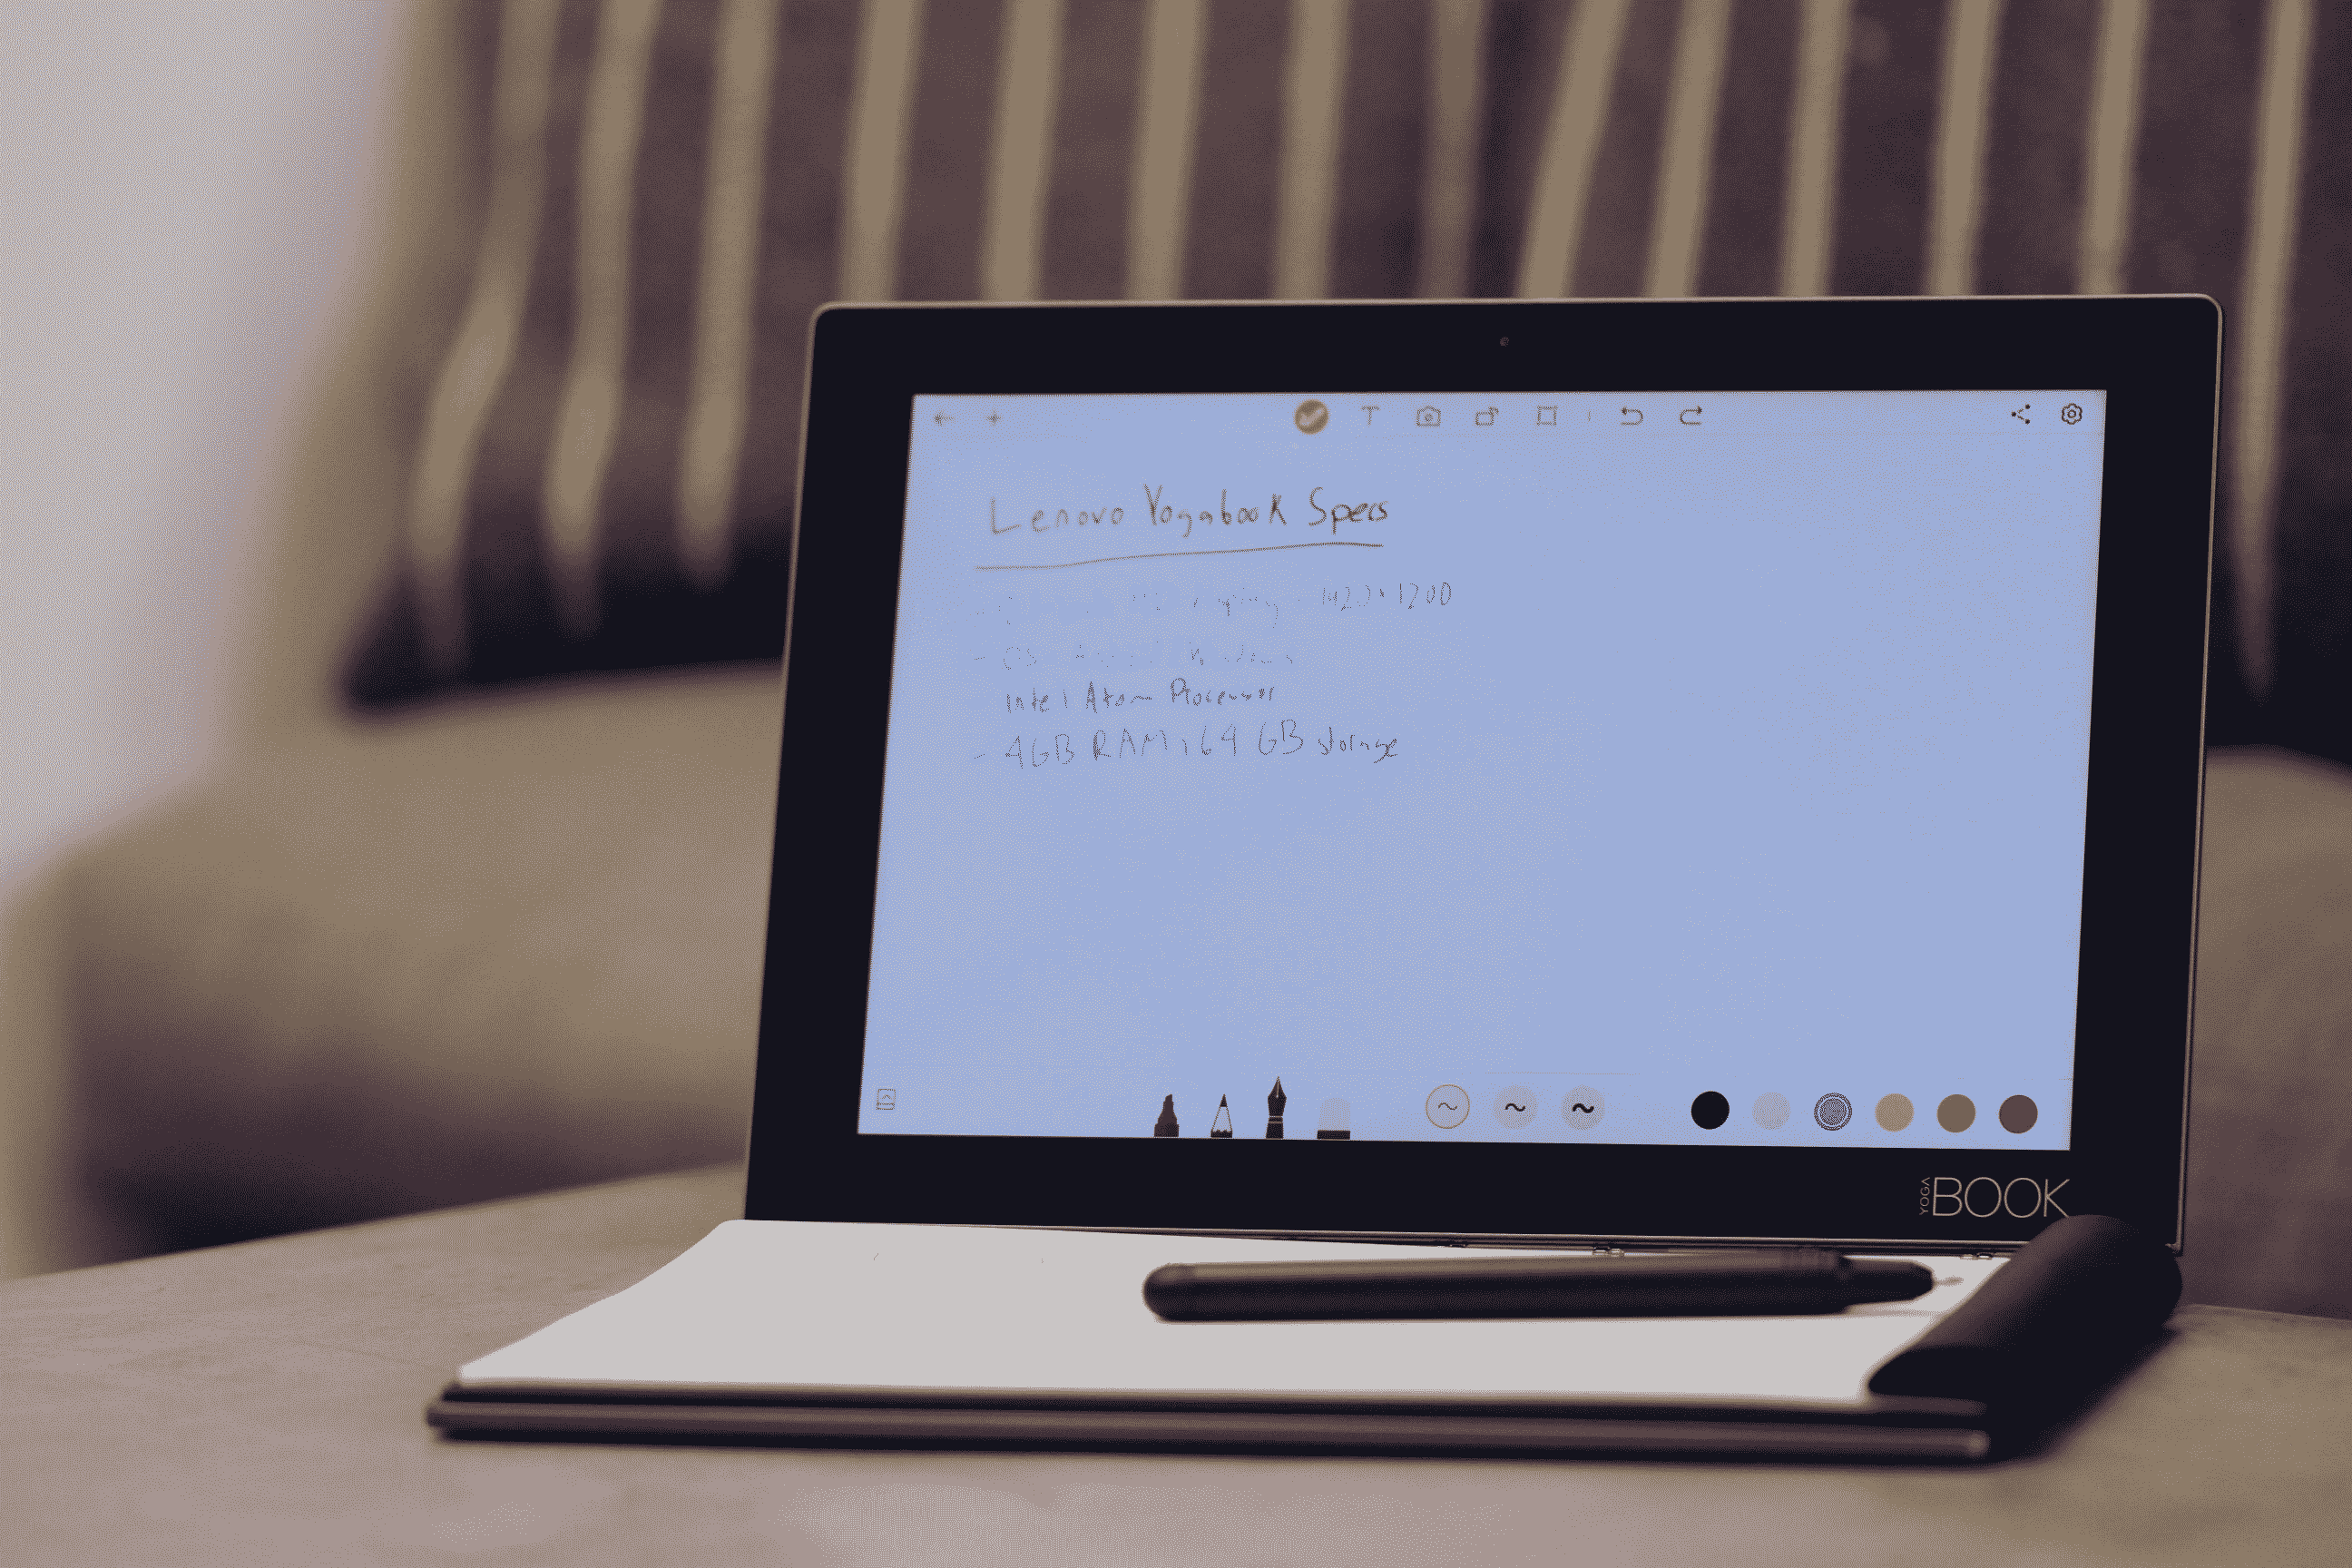 Lenovo Yogabook Specs
1920x1200
- OS
Intel Atom Processor
- 4GB RAM, 64 GB storage
YOGA BOOK